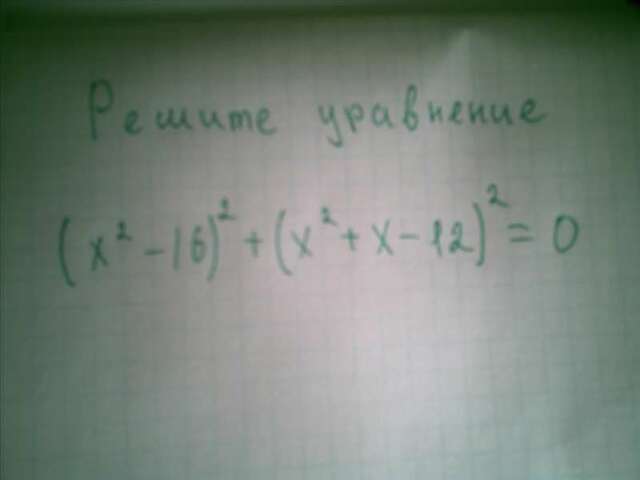 Решите уравнение
(x² - 16)² + (x² + x - 12)² = 0